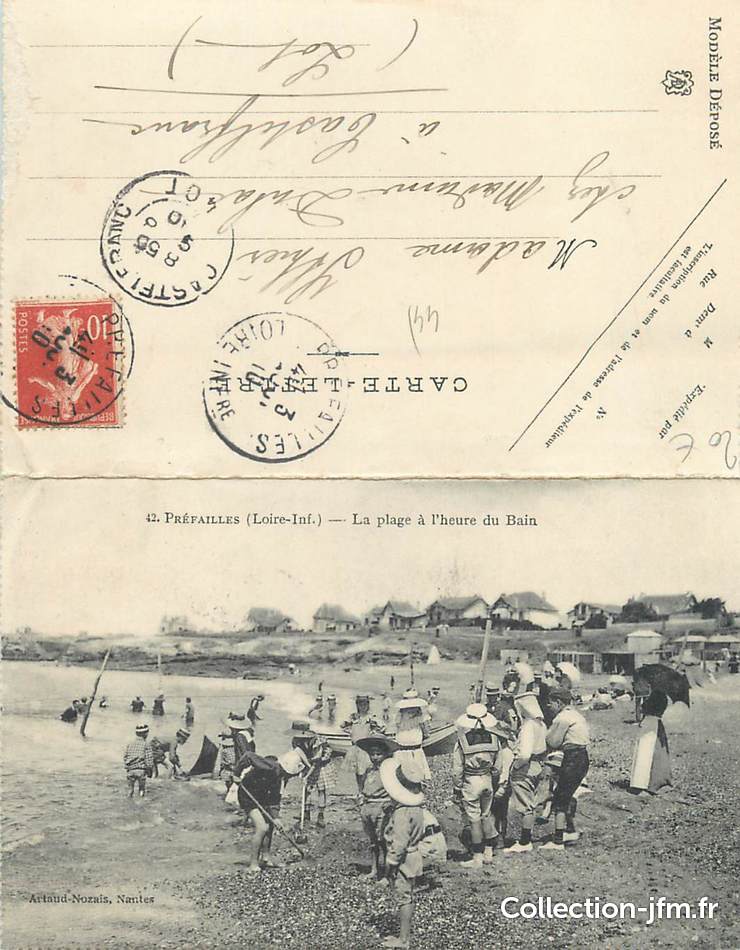 MODÈLE DÉPOSÉ
CARTE-LETTRE
Madame
chez Madame
à Castelfranc
(Lot)
Expédié par
M
Rue
Demt à
No
L'inscription du nom et de l'adresse de l'expéditeur
est facultative
CASTELFRANC
LOT
PRÉFAILLES
LOIRE INFRE
PRÉFAILLES
10
POSTES
44)
20 €
42. PRÉFAILLES (Loire-Inf.) — La plage à l'heure du Bain
Artaud-Nozais, Nantes
Collection-jfm.fr